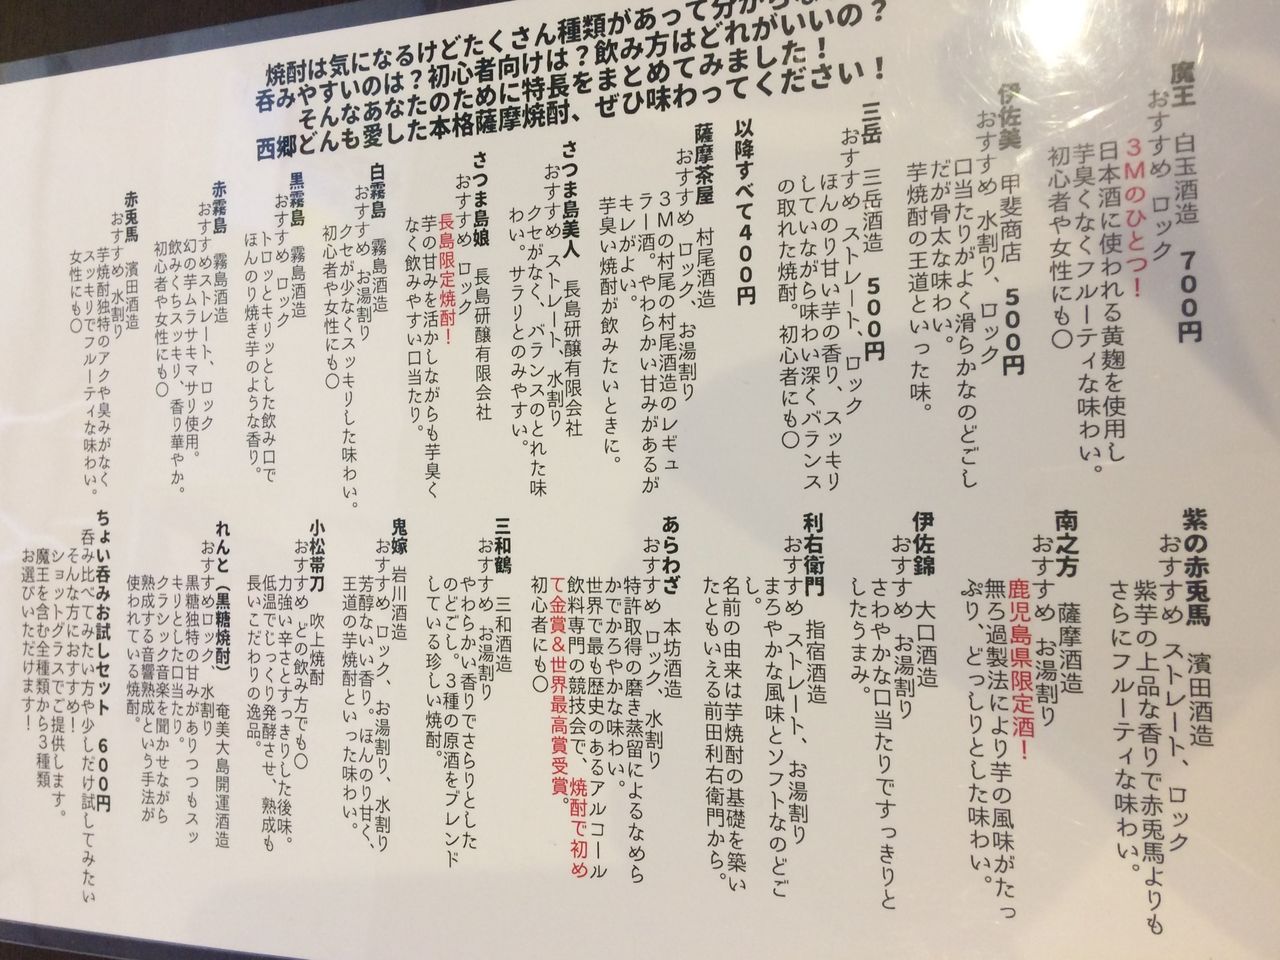 焼酎は気になるけどたくさん種類があって分からな
呑みやすいのは？初心者向けは？飲み方はどれがいいの？
そんなあなたのために特長をまとめてみました！
西郷どんも愛した本格薩摩焼酎、ぜひ味わってください！
魔王　白玉酒造　７００円
おすすめ　ロック
３Ｍのひとつ！
日本酒に使われる黄麹を使用し
芋臭くなくフルーティな味わい。
初心者や女性にも〇
伊佐美　甲斐商店　５００円
おすすめ　水割り、ロック
口当たりがよく滑らかなのどごし
だが骨太な味わい。
芋焼酎の王道といった味。
三岳　三岳酒造　５００円
おすすめ　ストレート、ロック
ほんのり甘い芋の香り、スッキリ
していながら味わい深くバランス
の取れた焼酎。初心者にも〇
以降すべて４００円
薩摩茶屋　村尾酒造
おすすめ　ロック、お湯割り
３Ｍの村尾の村尾酒造のレギュ
ラー酒。やわらかい甘みがあるが
キレがよい。
芋臭い焼酎が飲みたいときに。
さつま島美人　長島研醸有限会社
おすすめ　ストレート、水割り
クセがなく、バランスのとれた味
わい。サラリとのみやすい。
さつま島娘　長島研醸有限会社
おすすめ　ロック
長島限定焼酎！
芋の甘みを活かしながらも芋臭く
なく飲みやすい口当たり。
白霧島　霧島酒造
おすすめ　お湯割り
クセが少なくスッキリした味わい。
初心者や女性にも〇
黒霧島　霧島酒造
おすすめ　ロック
トロッとキリッとした飲み口で
ほんのり焼き芋のような香り。
赤霧島　霧島酒造
おすすめストレート、ロック
幻の芋ムラサキマサリ使用。
飲みくちスッキリ、香り華やか。
初心者や女性にも〇
赤兎馬　濱田酒造
おすすめ　水割り
芋焼酎独特のアクや臭みがなく
スッキリでフルーティな味わい。
女性にも〇
紫の赤兎馬　濱田酒造
おすすめ　ストレート、ロック
紫芋の上品な香りで赤兎馬よりも
さらにフルーティな味わい。
南之方　薩摩酒造
おすすめ　お湯割り
鹿児島県限定酒！
無ろ過製法により芋の風味がたっ
ぷり、どっしりとした味わい。
伊佐錦　大口酒造
おすすめ　お湯割り
さわやかな口当たりですっきりと
したうまみ。
利右衛門　指宿酒造
おすすめ　ストレート、お湯割り
まろやかな風味とソフトなのどご
し。
名前の由来は芋焼酎の基礎を築い
たともいえる前田利右衛門から。
あらわざ　本坊酒造
おすすめ　ロック、水割り
特許取得の磨き蒸留によるなめら
かでかろやかな味わい。
世界で最も歴史のあるアルコール
飲料専門の競技会で、焼酎で初め
て金賞＆世界最高賞受賞。
初心者にも〇
三和鶴　三和酒造
おすすめ　お湯割り
やわらかい香りでさらりとした
のどごし。３種の原酒をブレンド
している珍しい焼酎。
鬼嫁　岩川酒造
おすすめ　ロック、お湯割り、水割り
芳醇ない香り。ほんのり甘く、
王道の芋焼酎といった味わい。
小松帯刀　吹上焼酎
おすすめ　どの飲み方でも〇
力強い辛さとすっきりした後味。
低温でじっくり発酵させ、熟成も
長いこだわりの逸品。
れんと（黒糖焼酎）　奄美大島開運酒造
おすすめロック、水割り
黒糖独特の甘みがありつつもスッ
キリとした口当たり。
クラシック音楽を聞かせながら
熟成する音響熟成という手法が
使われている焼酎。
ちょい呑みお試しセット　６００円
呑み比べてみたい方や少しだけ試してみたい
そんな方におすすめ！
ショットグラスでご提供します。
魔王を含む全種類から３種類
お選びいただけます！